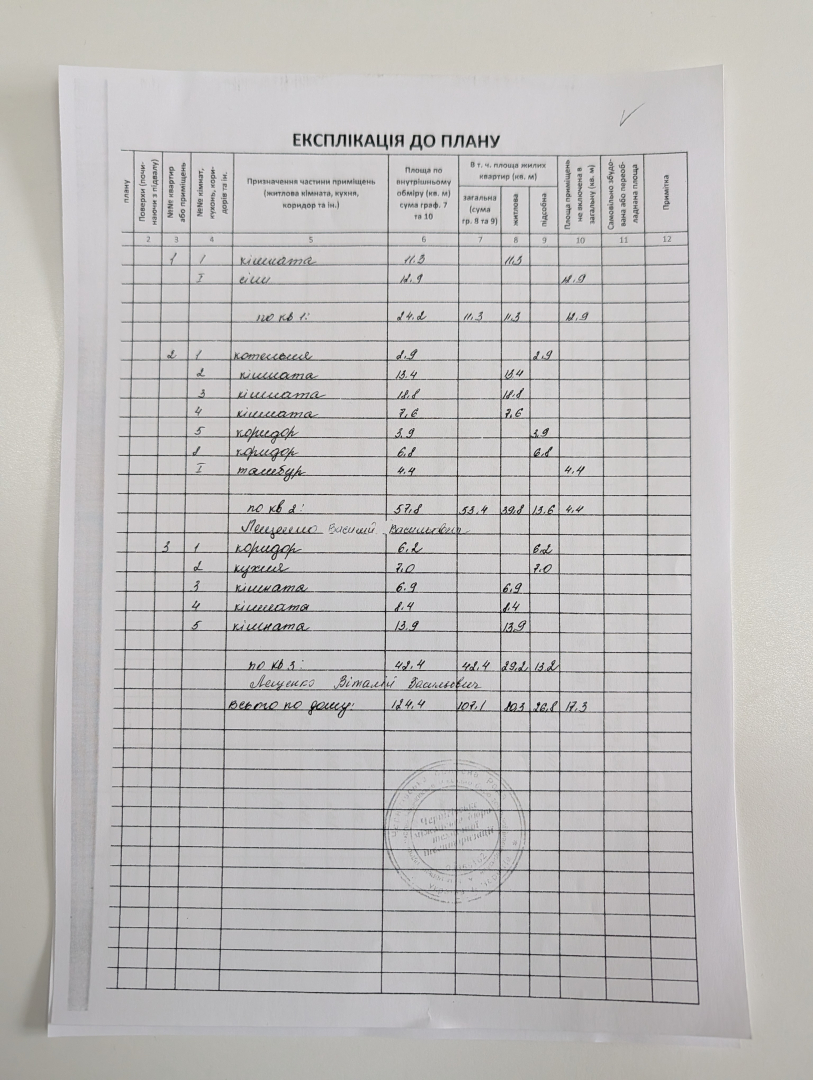 ЕКСПЛІКАЦІЯ ДО ПЛАНУ
плану
Поверхи (почи-
наючи з підвалу)
№№ квартир
або приміщень
№№ кімнат,
кухонь, кори-
дорів та ін.
Призначення частини приміщень
(житлова кімната, кухня,
коридор та ін.)
Площа по
внутрішньому
обміру (кв. м)
сума граф. 7
та 10
В т. ч. площа жилих
квартир (кв. м)
загальна
(сума
гр. 8 та 9)
житлова
підсобна
Площа приміщень
не включена в
загальну (кв. м)
Самовільно збудо-
вана або переоб-
ладнана площа
Примітка
2 3 4 5 6 7 8 9 10 11 12
1 1 кімната 11.3 11.3
I сіни 12.9 12.9
по кв 1: 24.2 11.3 11.3 12.9
2 1 котельня 2.9 2.9
2 кімната 13.4 13.4
3 кімната 18.8 18.8
4 кімната 7,6 7,6
5 коридор 3.9 3.9
8 коридор 6.8 6.8
I тамбур 4.4 4.4
по кв 2: 57.8 53.4 39.8 13.6 4.4
Лещенко Василий Васильевич
3 1 коридор 6.2 6.2
2 кухня 7.0 7.0
3 кімната 6.9 6.9
4 кімната 8.4 8.4
5 кімната 13.9 13.9
по кв 3: 42.4 42.4 29.2 13.2
Лещенко Віталій Васильович
Всього по дому: 124.4 107.1 80.3 26.8 17.3